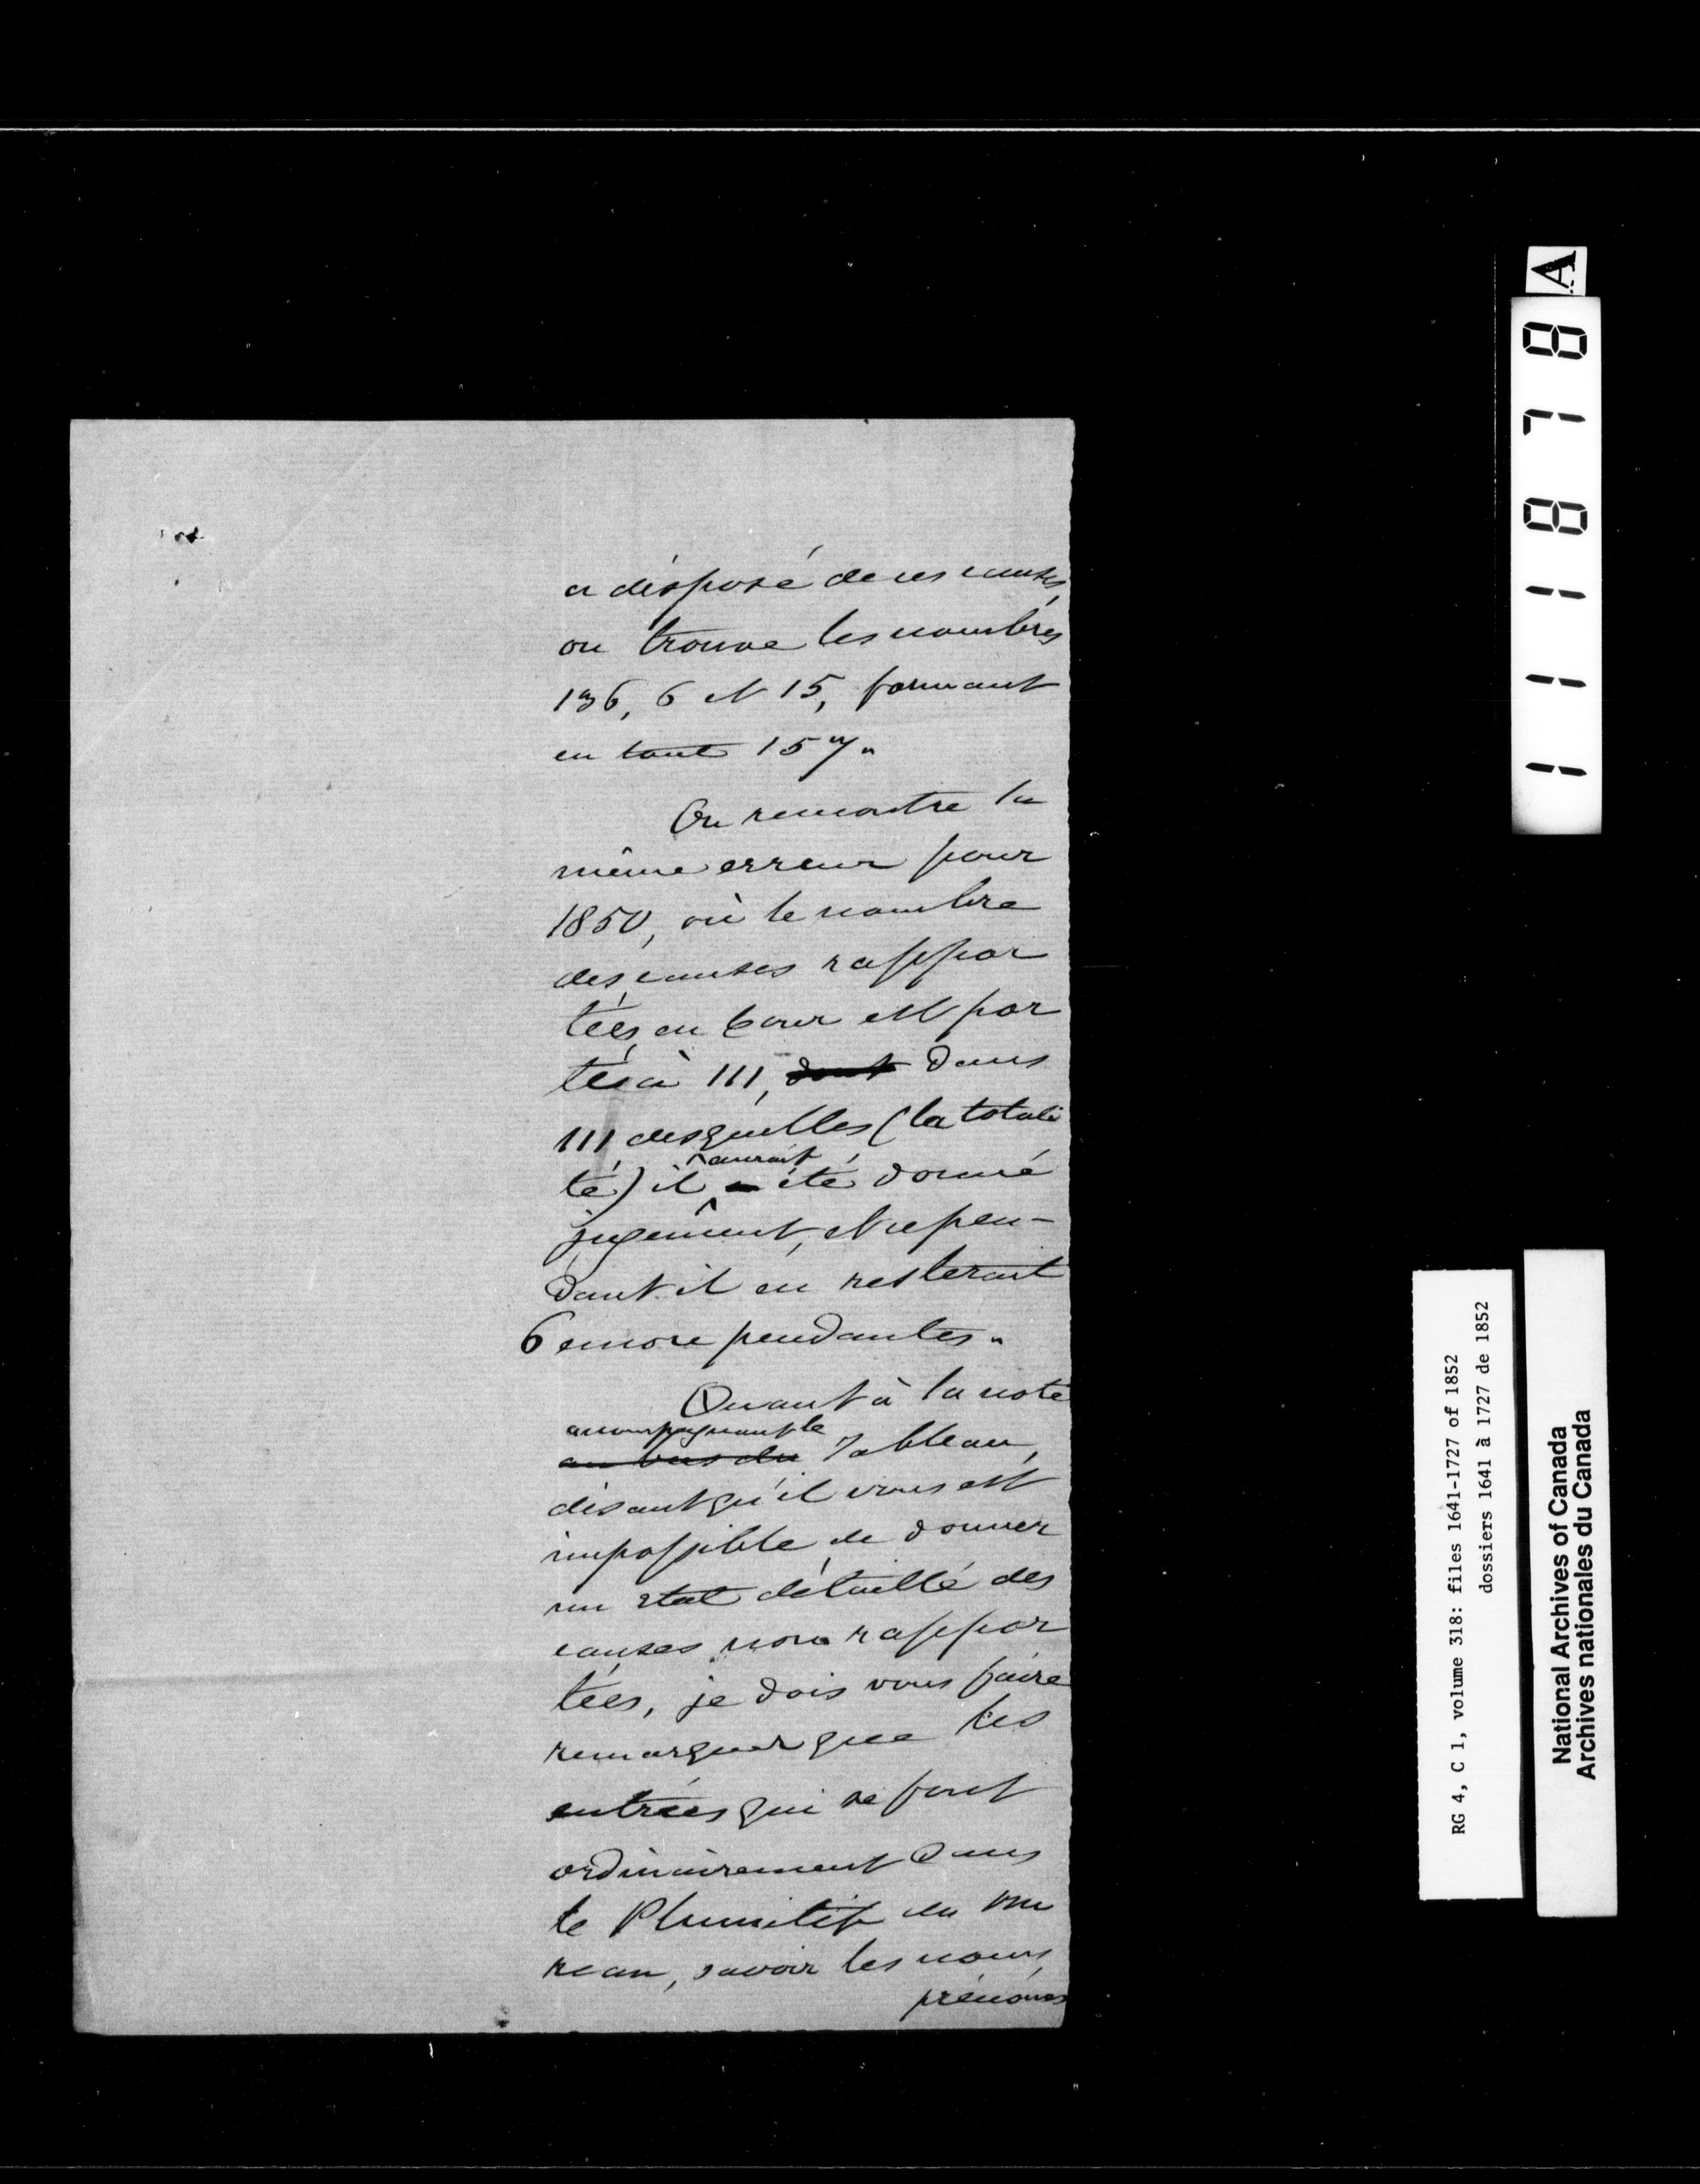 a disposé de ces causes,
on trouve les nombres
136, 6 et 15, formant
en tout 157.
On rencontre la
même erreur pour
1850, où le nombre
des causes rappor
tées en Cour est por
té à 111, dont dans
111 desquelles (la totali
té) il a aurait été donné
jugement, et cepen-
dant il en resterait
6 encore pendantes.
Quant à la note
accompagnant le
au bas du Tableau,
disant qu'il vous est
impossible de donner
un état détaillé des
causes non rappor
tées, je dois vous faire
remarquer que les
entrées qui se font
ordinairement dans
le Plumitif du Bu
reau, savoir les noms,
prénoms
111878 A
RG 4, C 1, volume 318: files 1641-1727 of 1852
dossiers 1641 à 1727 de 1852
National Archives of Canada
Archives nationales du Canada